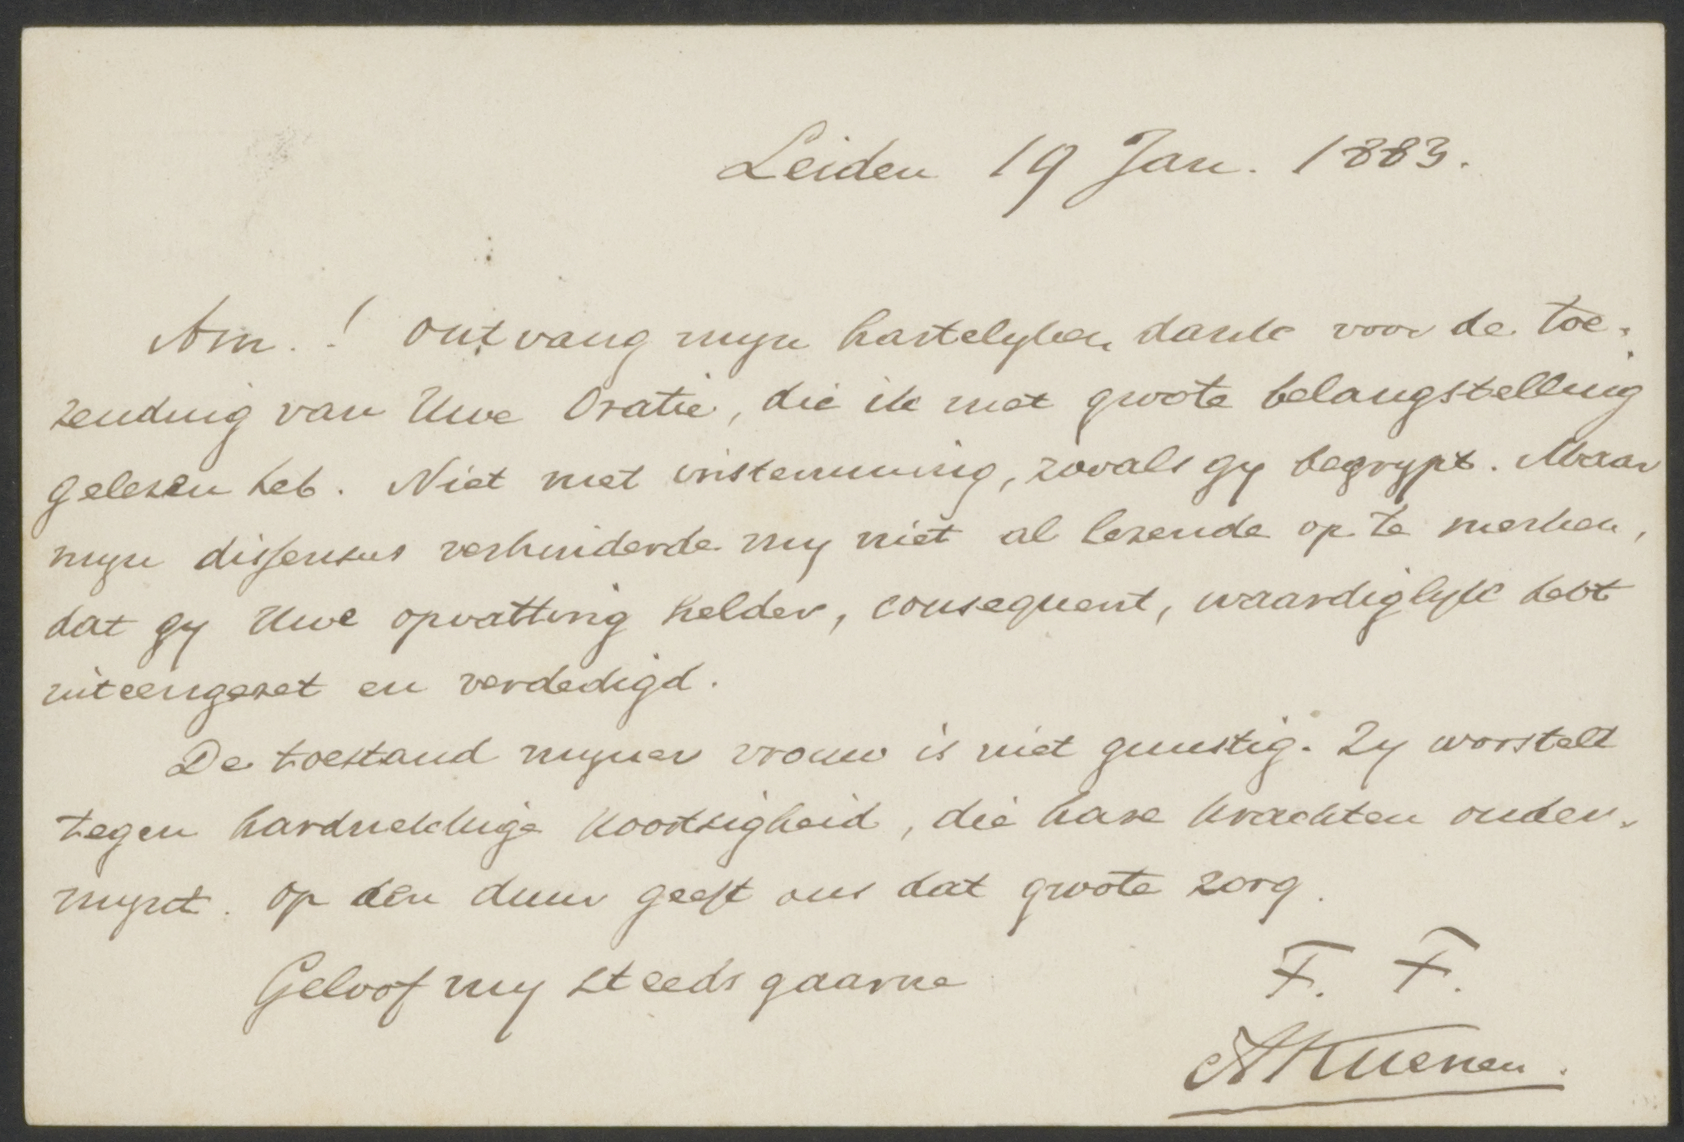 Leiden 19 Jan. 1883.
Am.! Ontvang mijn hartelijken dank voor de toe-
zending van Uwe Oratie, die ik met groote belangstelling
gelezen heb. Niet met instemming, zooals gij begrijpt. Maar
mijn dissensus verhinderde mij niet al lezende op te merken,
dat gij Uwe opvatting helder, consequent, waardiglijk hebt
uiteengezet en verdedigd.
De toestand mijner vrouw is niet gunstig. Zij worstelt
tegen hardnekkige koortsigheid, die hare krachten onder-
mijnt. Op den duur geeft ons dat groote zorg.
Geloof mij steeds gaarne
F. F.
AKuenen.